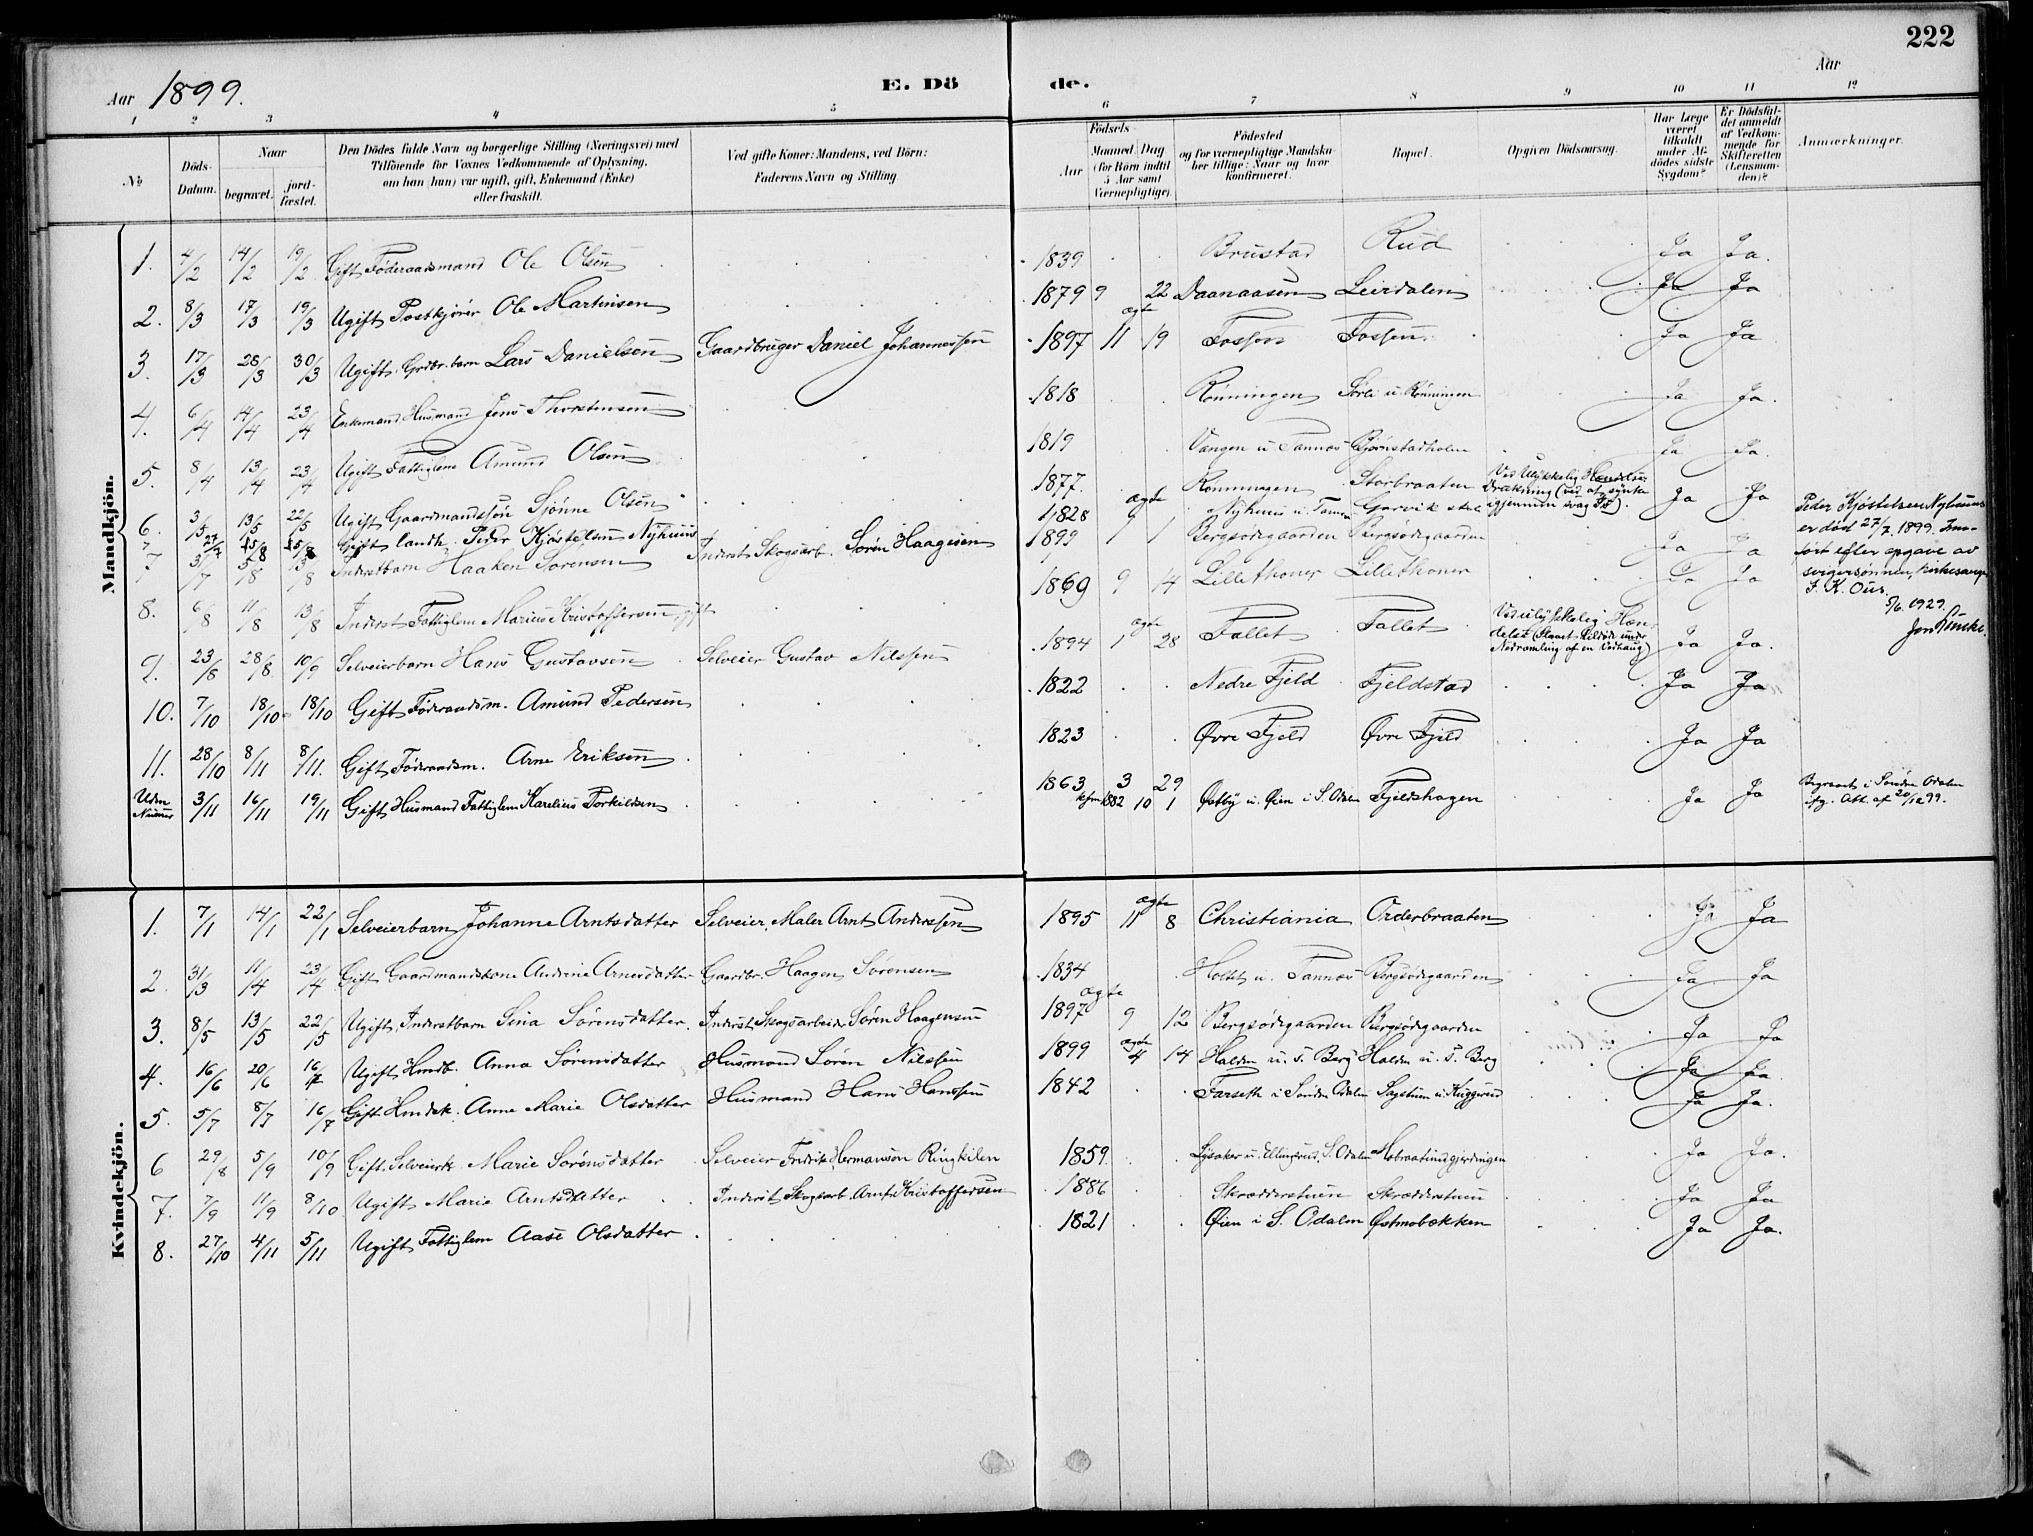 222
Aar 1899.
E. Dö de.
Aar
1 2 3 4 5 6 7 8 9 10 11 12
No
Döds-Datum.
Naar
begravet.
jord-fæstet.
Den Dödes fulde Navn og borgerlige Stilling (Næringsvei) med
Tilföiende for Voxnes Vedkommende af Oplysning,
om han (hun) var ugift, gift, Enkemand (Enke)
eller fraskilt.
Ved gifte Koner: Mandens, ved Börn:
Faderens Navn og Stilling
Födsels-
Aar
Maaned Dag
(for Börn indtil
5 Aar samt
Værnepligtige)
Födested
og for værnepligtige Mandska-
ber tillige: Naar og hvor
konfirmeret.
Bopæl.
Opgiven Dödsaarsag.
Har Læge
været
tilkaldt
under Af-
dödes sidste
Sygdom?
Er Dödsfal-
det anmeldt
af Vedkom-
mende for
Skifteretten
(Lensman-
den)?
Anmærkninger.
Mandkjön.
1. 4/2 14/2 19/2 Gift Föderaadsmand Ole Olsen 1839 Brustad Rud Ja Ja.
2. 8/3 17/3 19/3 Ugift Postkjörer Ole Martinsen 1879 9 22 Daanaasen Leirdalen Ja Ja
3. 17/3 28/3 30/3 Ugift Grdbr.barn Lars Danielsen Gaardbruger Daniel Johannessen 1897 ægte 11 19 Fossen Fossen Ja Ja
4. 6/4 14/4 23/4 Enkemand Husmand Jens Thorstensen 1818 Rønningen Sörli u. Rønningen Ja Ja.
5. 8/4 13/4 23/4 Ugift Fattiglem Amund Olsen 1819 Vangen u Tannæs Bjørnstadholm Ja Ja.
6. 3/5 13/5 22/5 Ugift Gaardmandssøn Sjønne Olsen 1877. Rønningen Storbraaten Ved Ulykkelig Hændelse: Drukning (ved at synke igjennem svag Is). Ja Ja
27/7 Gift landh. Peder Kjøstelsen Nyhuus 1828 Nyhuus u. Tannæs Garvik
7 3/7 5/8 13/8 Inderstbarn Haaken Sørensen Inderst Skogsarb. Søren Haagesen 1899 ægte 9 1 Bergsødegaarden Bergsødegaarden Ja Ja
8. 6/8 11/8 13/8 Inderst Fattiglem Marius Kristoffersen, gift 1869 9 14 Lillethoner Lillethoner Ja Ja
9. 23/8 28/8 10/9 Selveierbarn Hans Gustavsen Selveier Gustav Nilssen 1894 ægte 1 28 Fallet Fallet Ved ulykkelig Hændelse (Slaaet ihjel under Nedramling af en Vedhaug) Ja Ja.
10. 7/10 18/10 18/10 Gift Föderaadsm. Amund Pedersen 1822 Nedre Fjeld Fjeldstad Ja Ja
11. 28/10 8/11 8/11. Gift Föderaadsm. Arne Eriksen 1823 Øvre Fjeld Øvre Fjeld Ja Ja
Uden Numer 3/11 16/11 19/11 Gift Husmand Fattiglem Karelius Torkildsen 1863 3 29 kfm 1882 10 1 Østby u. Øien i S. Odalen Fjeldshagen Ja Ja Begravet i Søndre Odalen ifg. Att. af 20/12 99.
Peder Kjøstelsen Nyhuus
er død 27/7. 1899. Inn-
ført efter opgave av
svigersønnen, kirkesanger
J. K. Ous.
5/6. 1929.
Kvindekjön.
1. 7/1 14/1 22/1 Selveierbarn Johanne Arntsdatter Selveier, Maler Arnt Anderssen 1895 ægte 11 8 Christiania Orderbraaten Ja Ja
2 31/3 11/4 23/4 Gift Gaardmandskone Andrine Arnesdatter Gaardbr. Haagen Sørensen 1834 Holtet u. Tannæs Bergsødegaarden Ja Ja
3. 8/5 13/5 22/5 Ugift, Inderstbarn Sina Sørensdatter. Inderst Skogsarbeider Søren Haagensen 1897 ægte 9 12 Bergsødegaarden Bergsødegaarden Ja Ja
4. 16/6 20/6 16/7 Ugift Hmdb. Anna Sørensdatter Husmand Søren Nilssen 1899 ægte 4 14 Halden u. S. Berg Halden u. S. Berg Ja Ja
5. 5/7 8/7 16/7 Gift Hmdsk. Anne Marie Olsdatter Husmand Hans Hanssen 1842 Farseth i Søndre Odalen Sagstuen u. Kuggerud Ja Ja.
6 29/8 5/9 10/9 Gift Selveierk. Marie Sørensdatter Selveier Fredrik Hermansen Ringkilen 1859 Lysaker u. Ellingsrud, S. Odalen Ja Ja.
7. 7/9 11/9 8/10 Ugift Marie Arntsdatter Inderst Skogsarb. Arnt Kristoffersen 1886 Skrædderstuen Skrædderstuen Ja Ja
8. 27/10 4/11 5/11 Ugift Fattiglem Aase Olsdatter 1821 Øien i S. Odalen Østmobækken Ja Ja.